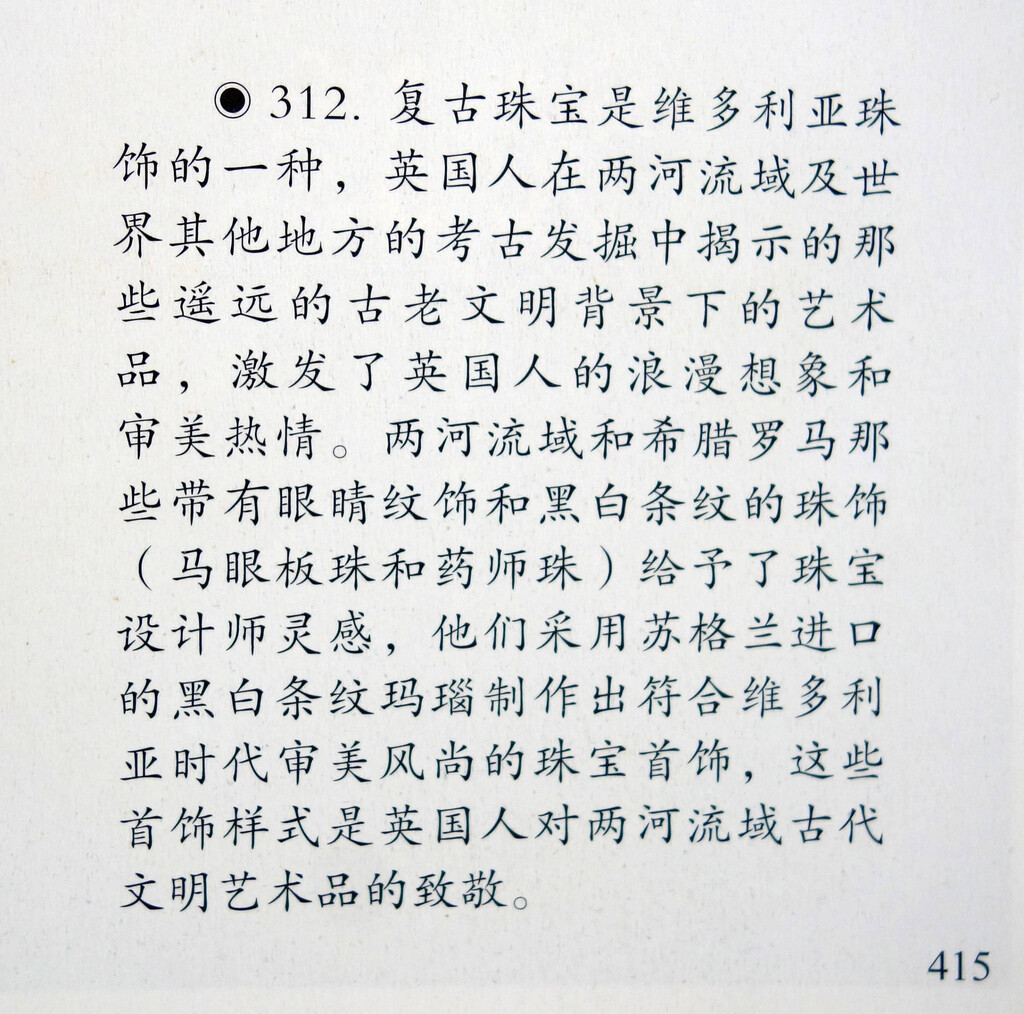 ◉ 312. 复古珠宝是维多利亚珠
饰的一种，英国人在两河流域及世
界其他地方的考古发掘中揭示的那
些遥远的古老文明背景下的艺术
品，激发了英国人的浪漫想象和
审美热情。两河流域和希腊罗马那
些带有眼睛纹饰和黑白条纹的珠饰
（马眼板珠和药师珠）给予了珠宝
设计师灵感，他们采用苏格兰进口
的黑白条纹玛瑙制作出符合维多利
亚时代审美风尚的珠宝首饰，这些
首饰样式是英国人对两河流域古代
文明艺术品的致敬。
415